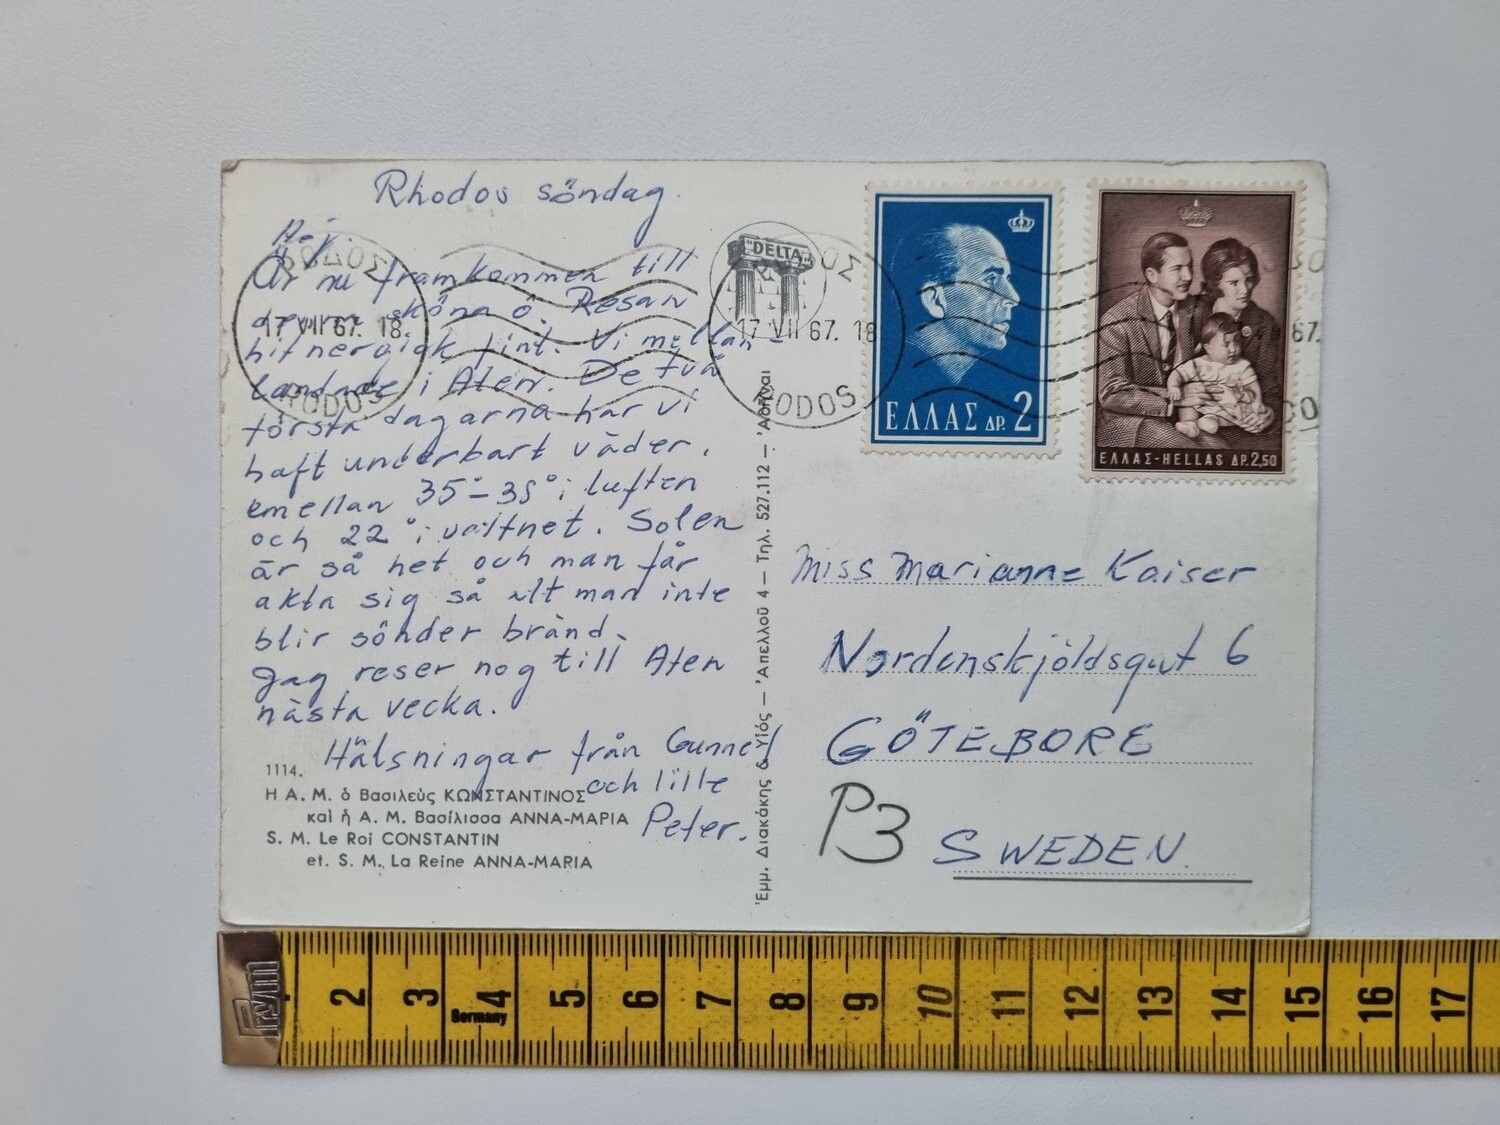 Rhodos söndag.
Hej.
Är nu framkommen till
denna sköna ö. Resan
hit fint. Vi mellan-
landade i Aten. De två
första dagarna har vi
haft underbart väder.
emellan 35°-38° i luften
och 22° i vattnet. Solen
är så het och man får
akta sig så att man inte
blir sönder bränd.
Jag reser nog till Aten
nästa vecka.
Hälsningar från Gunnel
och lille
Peter.
1114.
Η Α. Μ. ὁ Βασιλεὺς ΚΩΝΣΤΑΝΤΙΝΟΣ
καὶ ἡ Α. Μ. Βασίλισσα ΑΝΝΑ-ΜΑΡΙΑ
S. M. Le Roi CONSTANTIN
et. S. M. La Reine ANNA-MARIA
Ἐμμ. Διακάκης & Υἱός — Ἀπελλοῦ 4 — Τηλ. 527.112 — Ἀθῆναι
ΡΟΔΟΣ
17 VII 67. 18
RODOS
"DELTA"
ΡΟΔΟΣ
17 VII 67. 18
RODOS
67.
ΕΛΛΑΣ ΔΡ. 2
ΕΛΛΑΣ-HELLAS ΔΡ. 2,50
Miss Marianne Kaiser
Nordenskjöldsgat 6
GÖTEBORG
P3
SWEDEN.
Prym
2 3 4 5 6 7 8 9 10 11 12 13 14 15 16 17
Germany